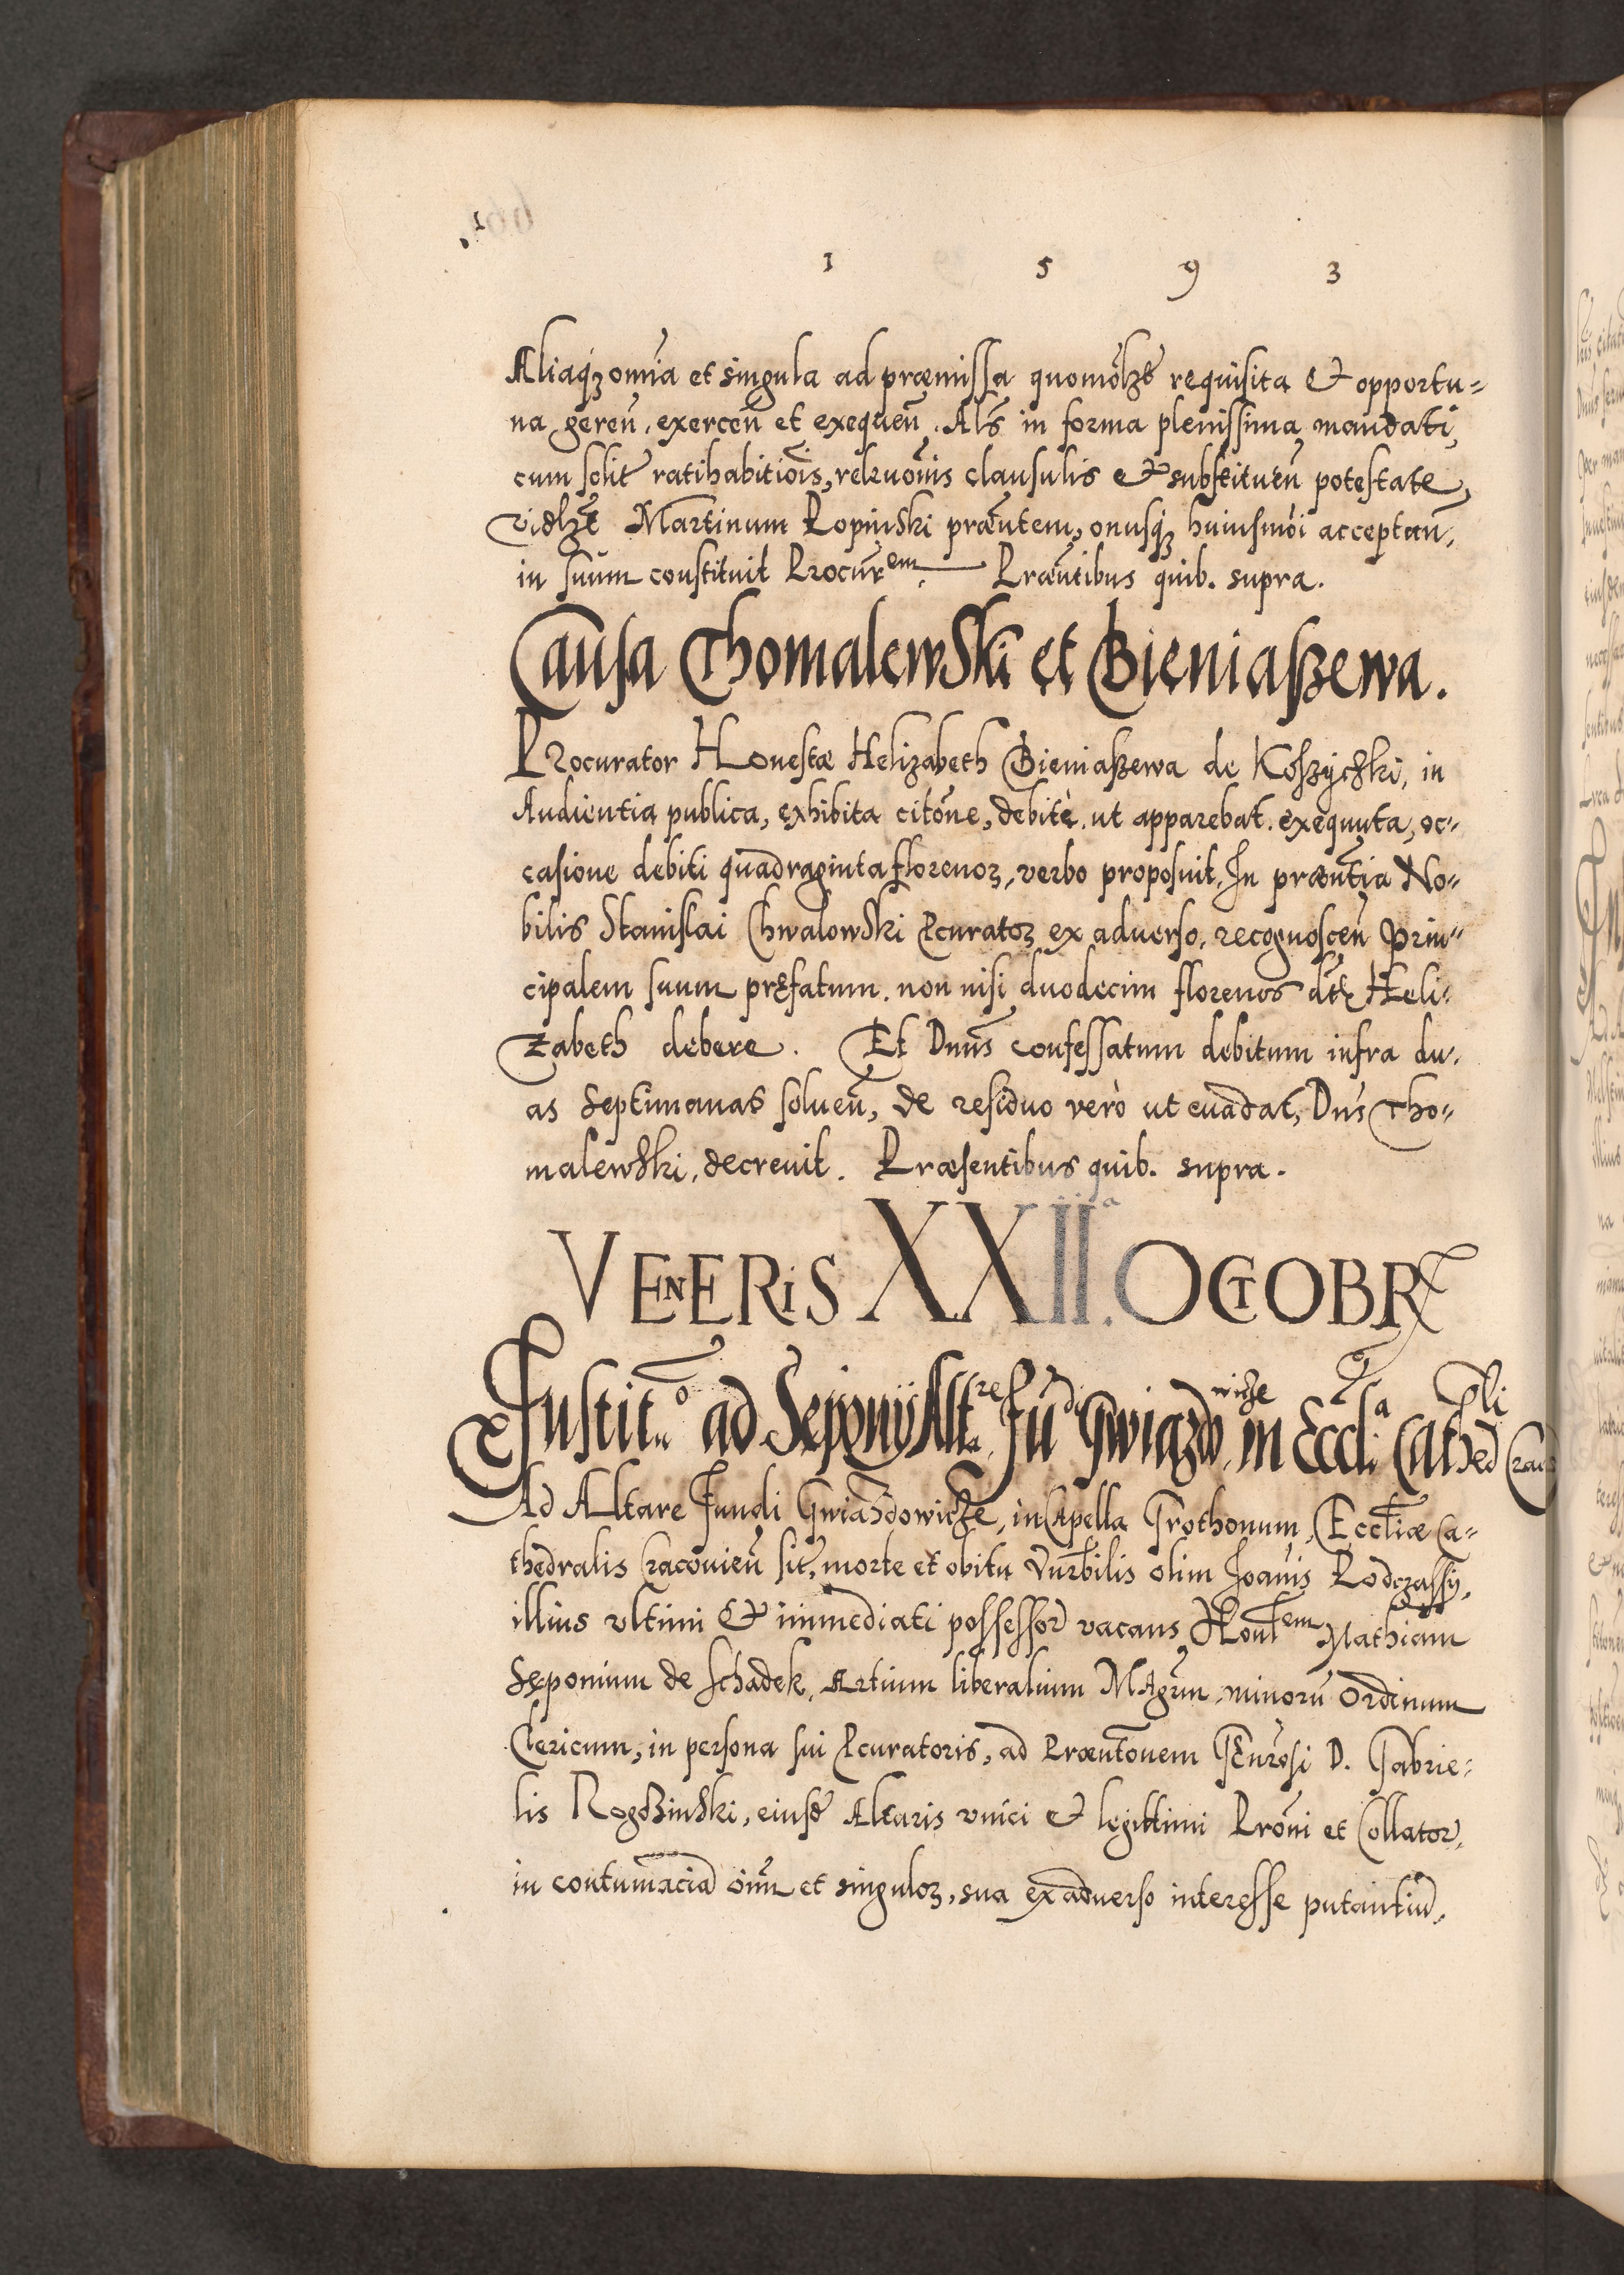 1 5 9 3
Aliaqꝫ omīa et singula ad præmissa quomōlꝫt requisita & opportu=
na gereñ. exerceñ et exequeñ. Als̃ in forma plenissima mandati,
cum solit̃ ratihabitiõis, releuõnis clausulis & substitueñ potestate,
vidlꝫt Martinum Ropinski præñtem, onusqꝫ huiusmõi acceptañ,
in suum constituit Procur̃em. Præñtibus quib. supra.
Causa Thomalewski et Bieniaszewa.
Procurator Honestæ Helizabeth Bieniaszewa de Koszyczki, in
Audientia publica, exhibita citõne, debitè, ut apparebat. exequuta, oc=
casione debiti quadraginta florenoꝝ, verbo proposuit. In præñtia No=
bilis Stanislai Chwalowski Pcuratoꝝ ex aduerso, recognosceñ Prin=
cipalem suum pręfatum. non nisi duodecim florenos dt̃æ Heli=
zabeth debere. Et Dnũs confessatum debitum infra du=
as septimanas solueñ, de residuo verò ut euadat, Dñs Tho=
malewski, decreuit. Præsentibus quib. supra.
VENERIS XXIIa. OCTOBR
Instito ad Sejonij Altre Fũdi Gwiazdowicze in Eccla Cathedli Crac
Ad Altare Fundi Gwiazdowicze, in Capella Grothonum, Eccl̃iæ Ca=
thedralis Cracouieñ sit̃, morte et obitu Vnr̃bilis olim Joañis Rodczassy,
illius vltimi & immediati possessor̃ vacans Hon̄lem Mathiam
Seponium de Schadek, Artium liberalium Magr̃m, minorũ Ordinum
Clericum, in persona sui Pcuratoris, ad Præñtõnem Gẽnrosi D. Gabrie=
lis Rogozinski, eiusd̃ Altaris vnici & legittimi Prõni et Collator̃,
in contumaciã oĩm et singuloꝝ, sua ex aduerso interesse putantiũ,